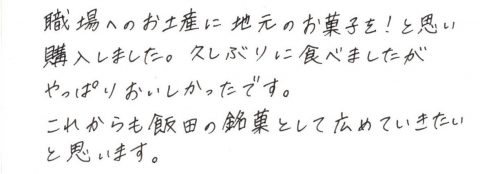 職場へのお土産に地元のお菓子を!と思い
購入しました。久しぶりに食べましたが
やっぱりおいしかったです。
これからも飯田の銘菓として広めていきたい
と思います。